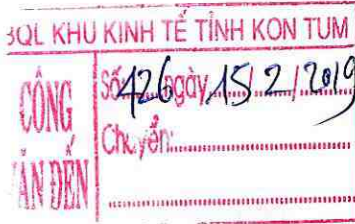 BQL KHU KINH TẾ TỈNH KON TUM
CÔNG VĂN ĐẾN
Số: 426 ngày 15/2/2019
Chuyển: